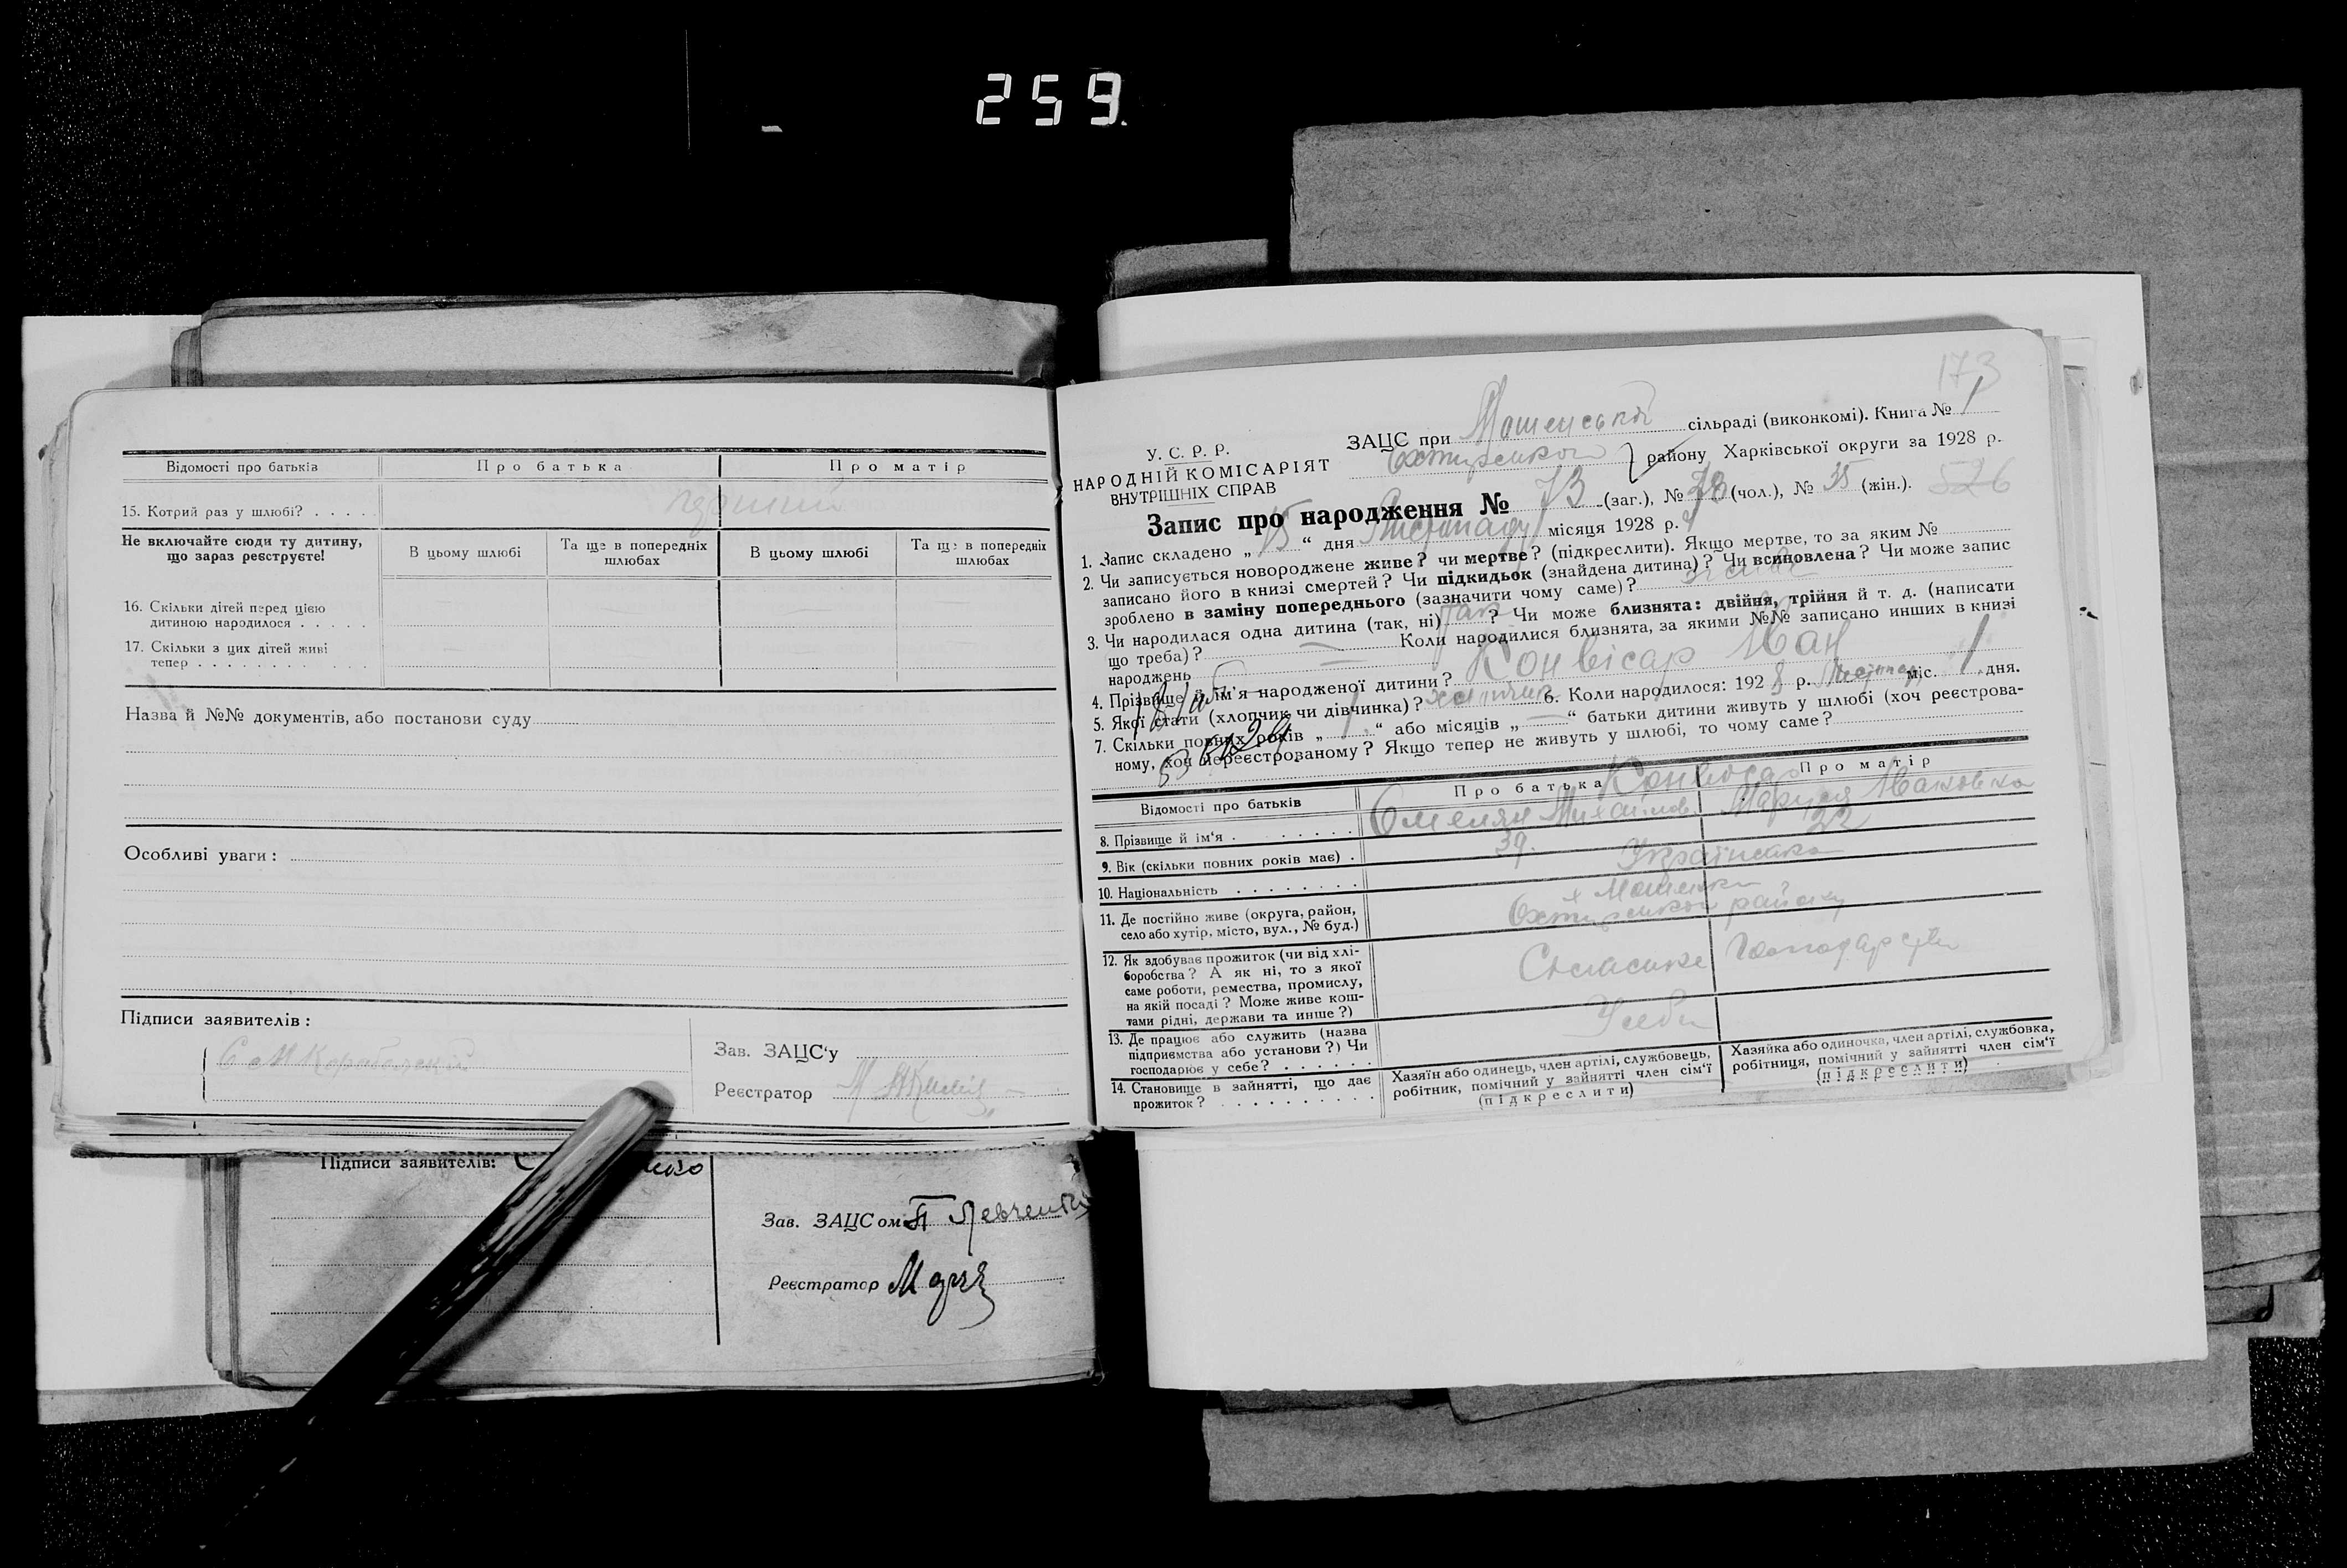 259.
Відомості про батьків
Про батька
Про матір
15. Котрий раз у шлюбі? . . . .
Не включайте сюди ту дитину,
що зараз реєструєте!
В цьому шлюбі
Та ще в попередніх
шлюбах
В цьому шлюбі
Та ще в попередніх
шлюбах
16. Скільки дітей перед цією
дитиною народилося . . . . .
17. Скільки з цих дітей живі
тепер . . . . . . . . . . .
Назва й №№ документів, або постанови суду
Особливі уваги:
Підписи заявителів:
Зав. ЗАЦС‘у
Реєстратор
Підписи заявителів:
Зав. ЗАЦСом
Реєстратор
173
У. С. Р. Р.
НАРОДНІЙ КОМІСАРІЯТ
ВНУТРІШНІХ СПРАВ
ЗАЦС при Мошенській сільраді (виконкомі). Книга № 1
Охтирського району Харківської округи за 1928 р.
Запис про народження № 73 (заг.), № 38 (чол.), № 35 (жін.). 526
1. Запис складено „ 15 “ дня Листопаду місяця 1928 р.
2. Чи записується новороджене живе? чи мертве? (підкреслити). Якщо мертве, то за яким №
записано його в книзі смертей? Чи підкидьок (знайдена дитина)? Чи всиновлена? Чи може запис
зроблено в заміну попереднього (зазначити чому саме)? живе
3. Чи народилася одна дитина (так, ні) так ? Чи може близнята: двійня, трійня й т. д. (написати
що треба)? — Коли народилися близнята, за якими №№ записано инших в книзі
народжень
4. Прізвище й ім‘я народженої дитини? Конвісар Іван
5. Якої стати (хлопчик чи дівчинка)? хлопчик 6. Коли народилося: 1928 р. Листопад міс. 1 дня.
7. Скільки повних років „ 1 “ або місяців „ — “ батьки дитини живуть у шлюбі (хоч реєстрова-
ному, хоч нереєстрованому? Якщо тепер не живуть у шлюбі, то чому саме?
Відомості про батьків
Про батька
Про матір
8. Прізвище й ім‘я . . . . . . . .
Конвісар
Омелян Михайлов.
Маруся Івановна
9. Вік (скільки повних років має) .
39.
22
10. Національність . . . . . . . .
Українська
11. Де постійно живе (округа, район,
село або хутір, місто, вул., № буд.)
х Мошенка
Охтирського району
12. Як здобуває прожиток (чи від хлі-
боробства? А як ні, то з якої
саме роботи, ремества, промислу,
на якій посаді? Може живе кош-
тами рідні, держави та инше?)
Сільське Господарство
13. Де працює або служить (назва
підприємства або установи?) Чи
господарює у себе? . . . . . .
У себе
14. Становище в зайнятті, що дає
прожиток? . . . . . . . . . .
Хазяїн або одинець, член артілі, службовець,
робітник, помічний у зайнятті член сім‘ї
(підкреслити)
Хазяйка або одиночка, член артілі, службовка,
робітниця, помічний у зайнятті член сім‘ї
(підкреслити)